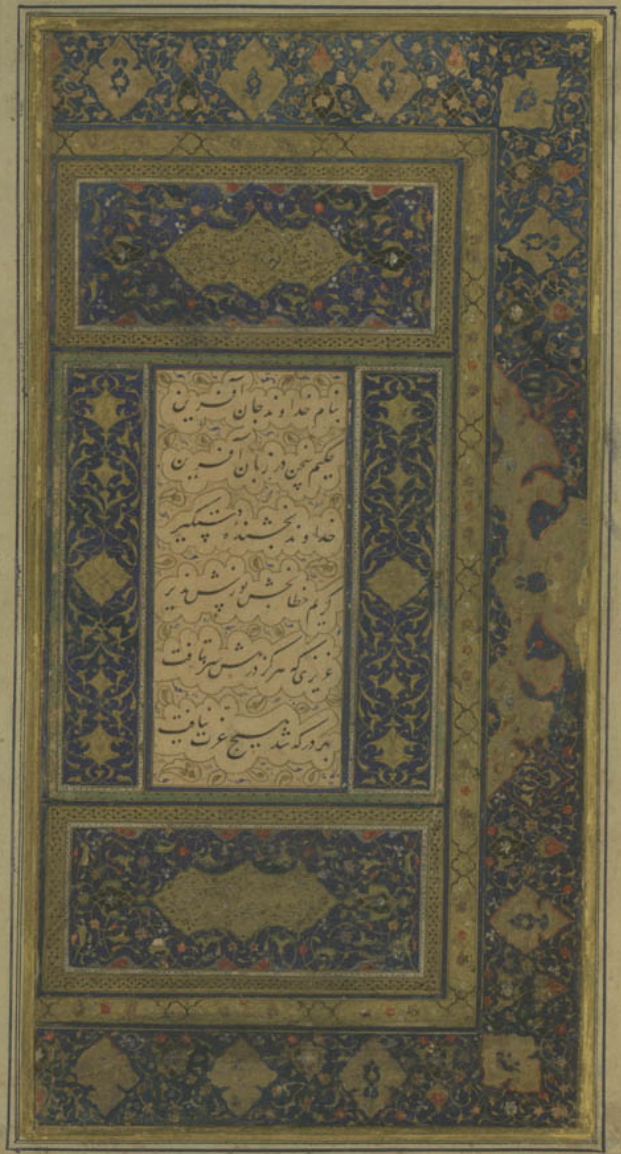 بنام خداوند جان آفرین
حکیم سخن در زبان آفرین
خداوند بخشنده دستگیر
کریم خطا بخش پوزش پذیر
عزیزی که هرگز درش سر بتافت
بهر در که شد هیچ عزت نیافت